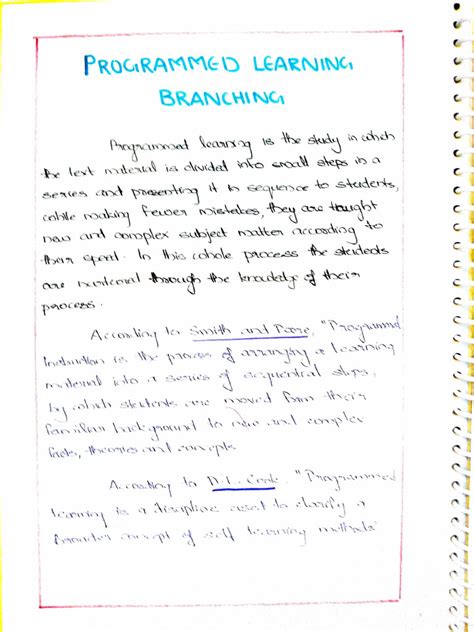 PROGRAMMED LEARNING
BRANCHING
Programmed learning is the study in which
the text material is divided into small steps in a
series and presenting it in sequence to students,
while making fewer mistakes, they are taught
new and complex subject matter according to
their speed. In this whole process the students
are through the knowledge of their
process.
According to Smith and Moore, "Programmed
Instruction is the process of arranging a learning
material into a series of sequential steps,
by which students are moved from their
familiar background to new and complex
facts, theories and concepts.
According to D.L. Cook, "Programmed
learning is a discipline used to clarify a
broader concept of self learning methods"